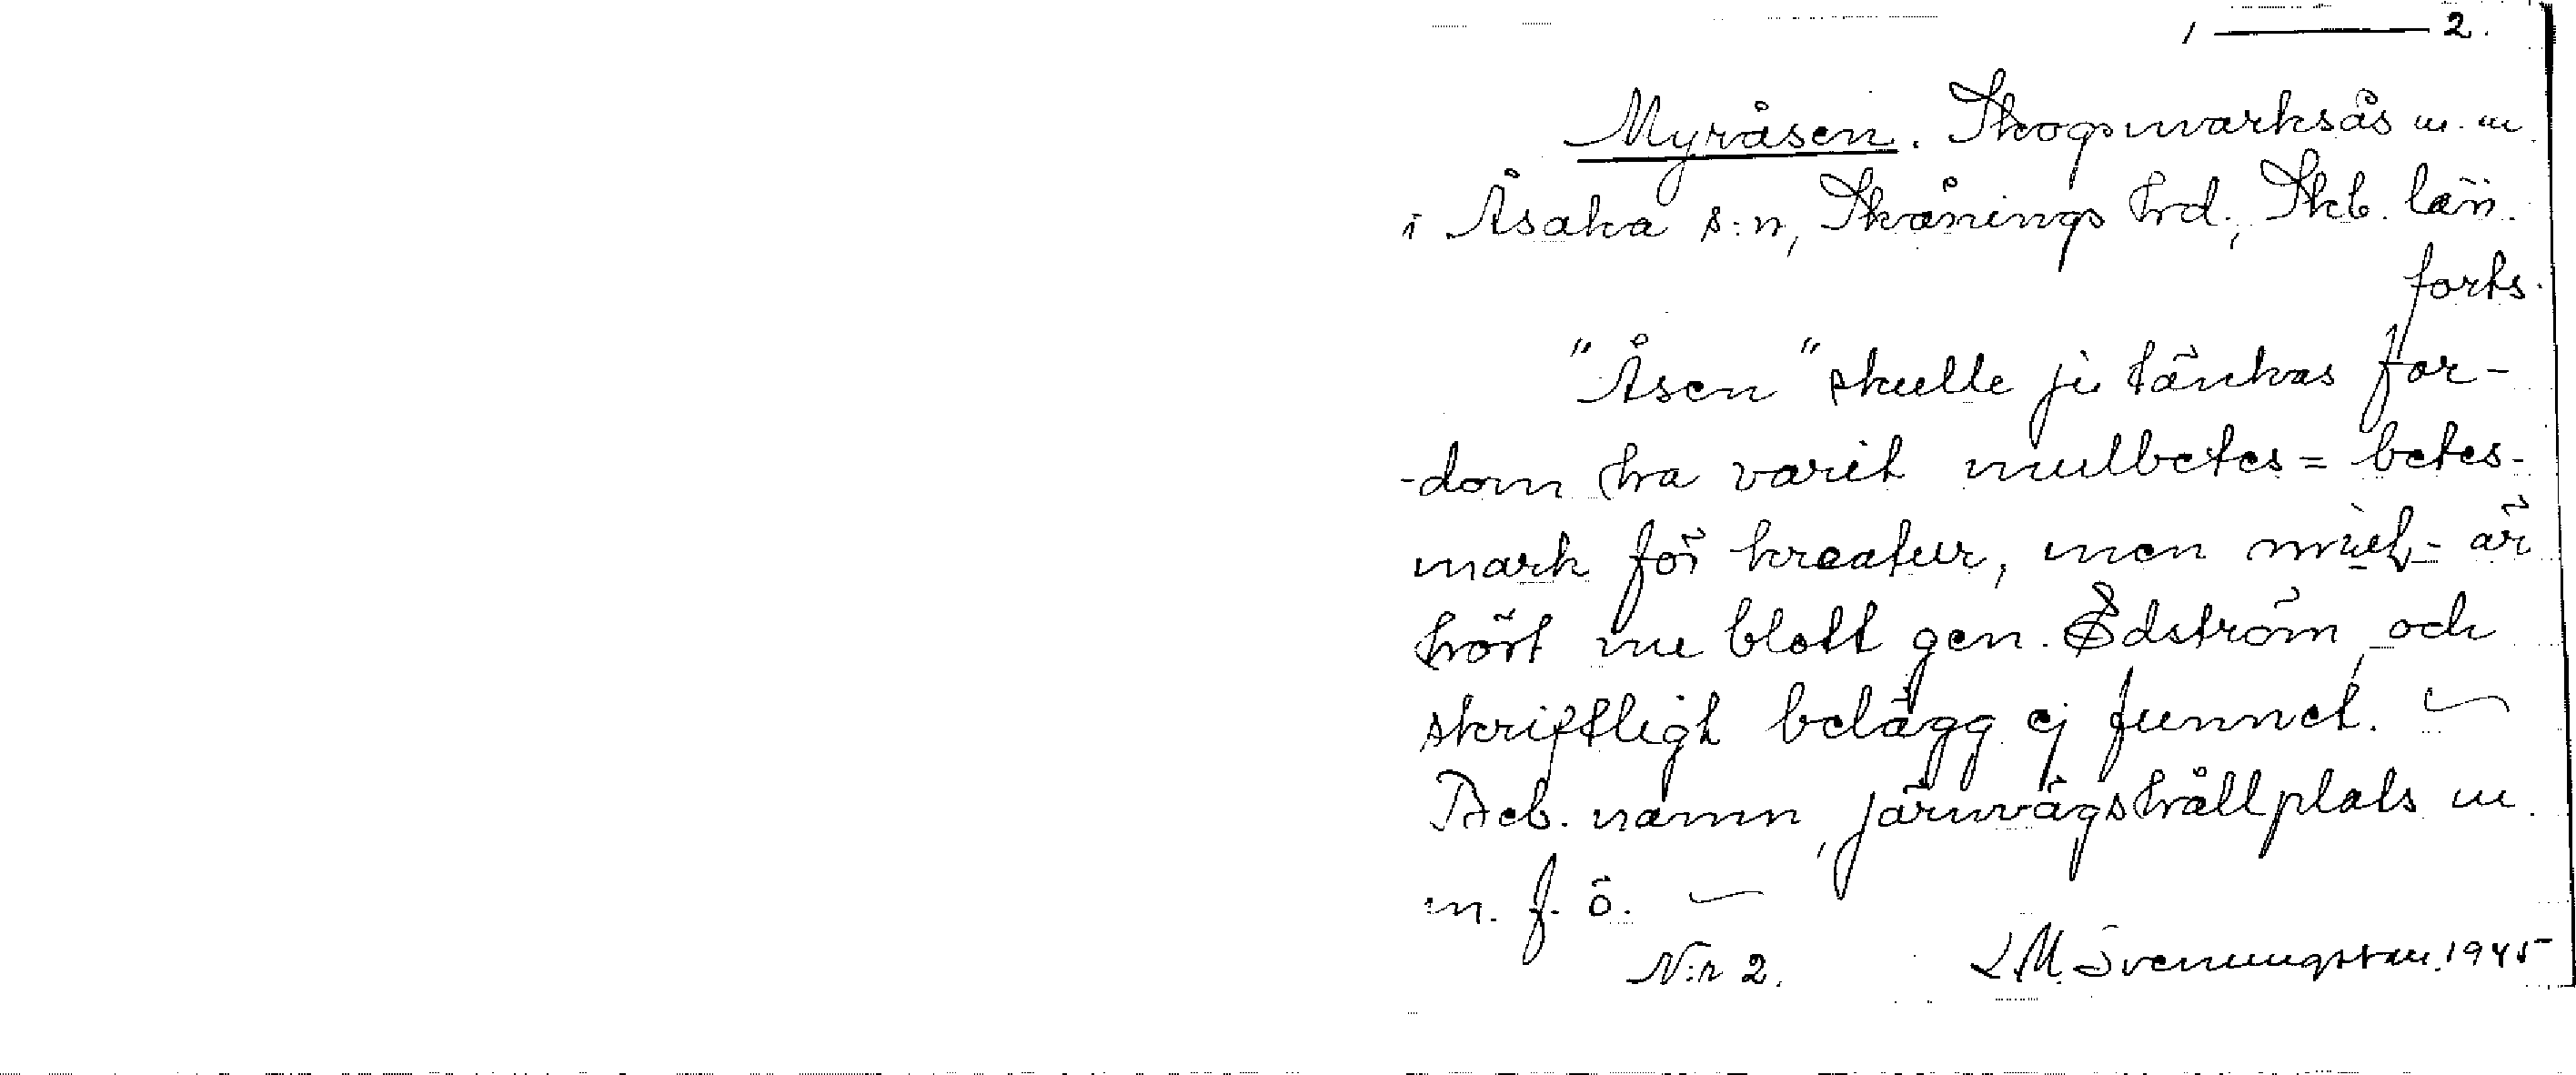 1 — 2.
Myråsen. Skogsmarksås m.m.
i Åsaka s:n, Skånings hrd., Skb. län.
forts.
"Åsen" skulle ju tänkas for-
-dom ha varit mulbetes = betes-
mark för kreatur, men är
hört nu blott gen. Edström, och
skriftligt belägg ej funnet. —
Beb. namn, järnvägshållplats m.
m. f. ö. —
N:r 2. L M. Svenungsson. 1945